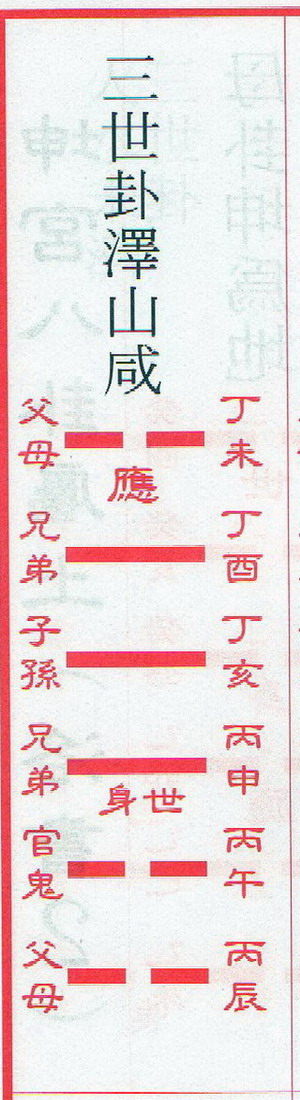 三世卦澤山咸
父母 丁未
應
兄弟 丁酉
子孫 丁亥
兄弟 丙申
身世
官鬼 丙午
父母 丙辰